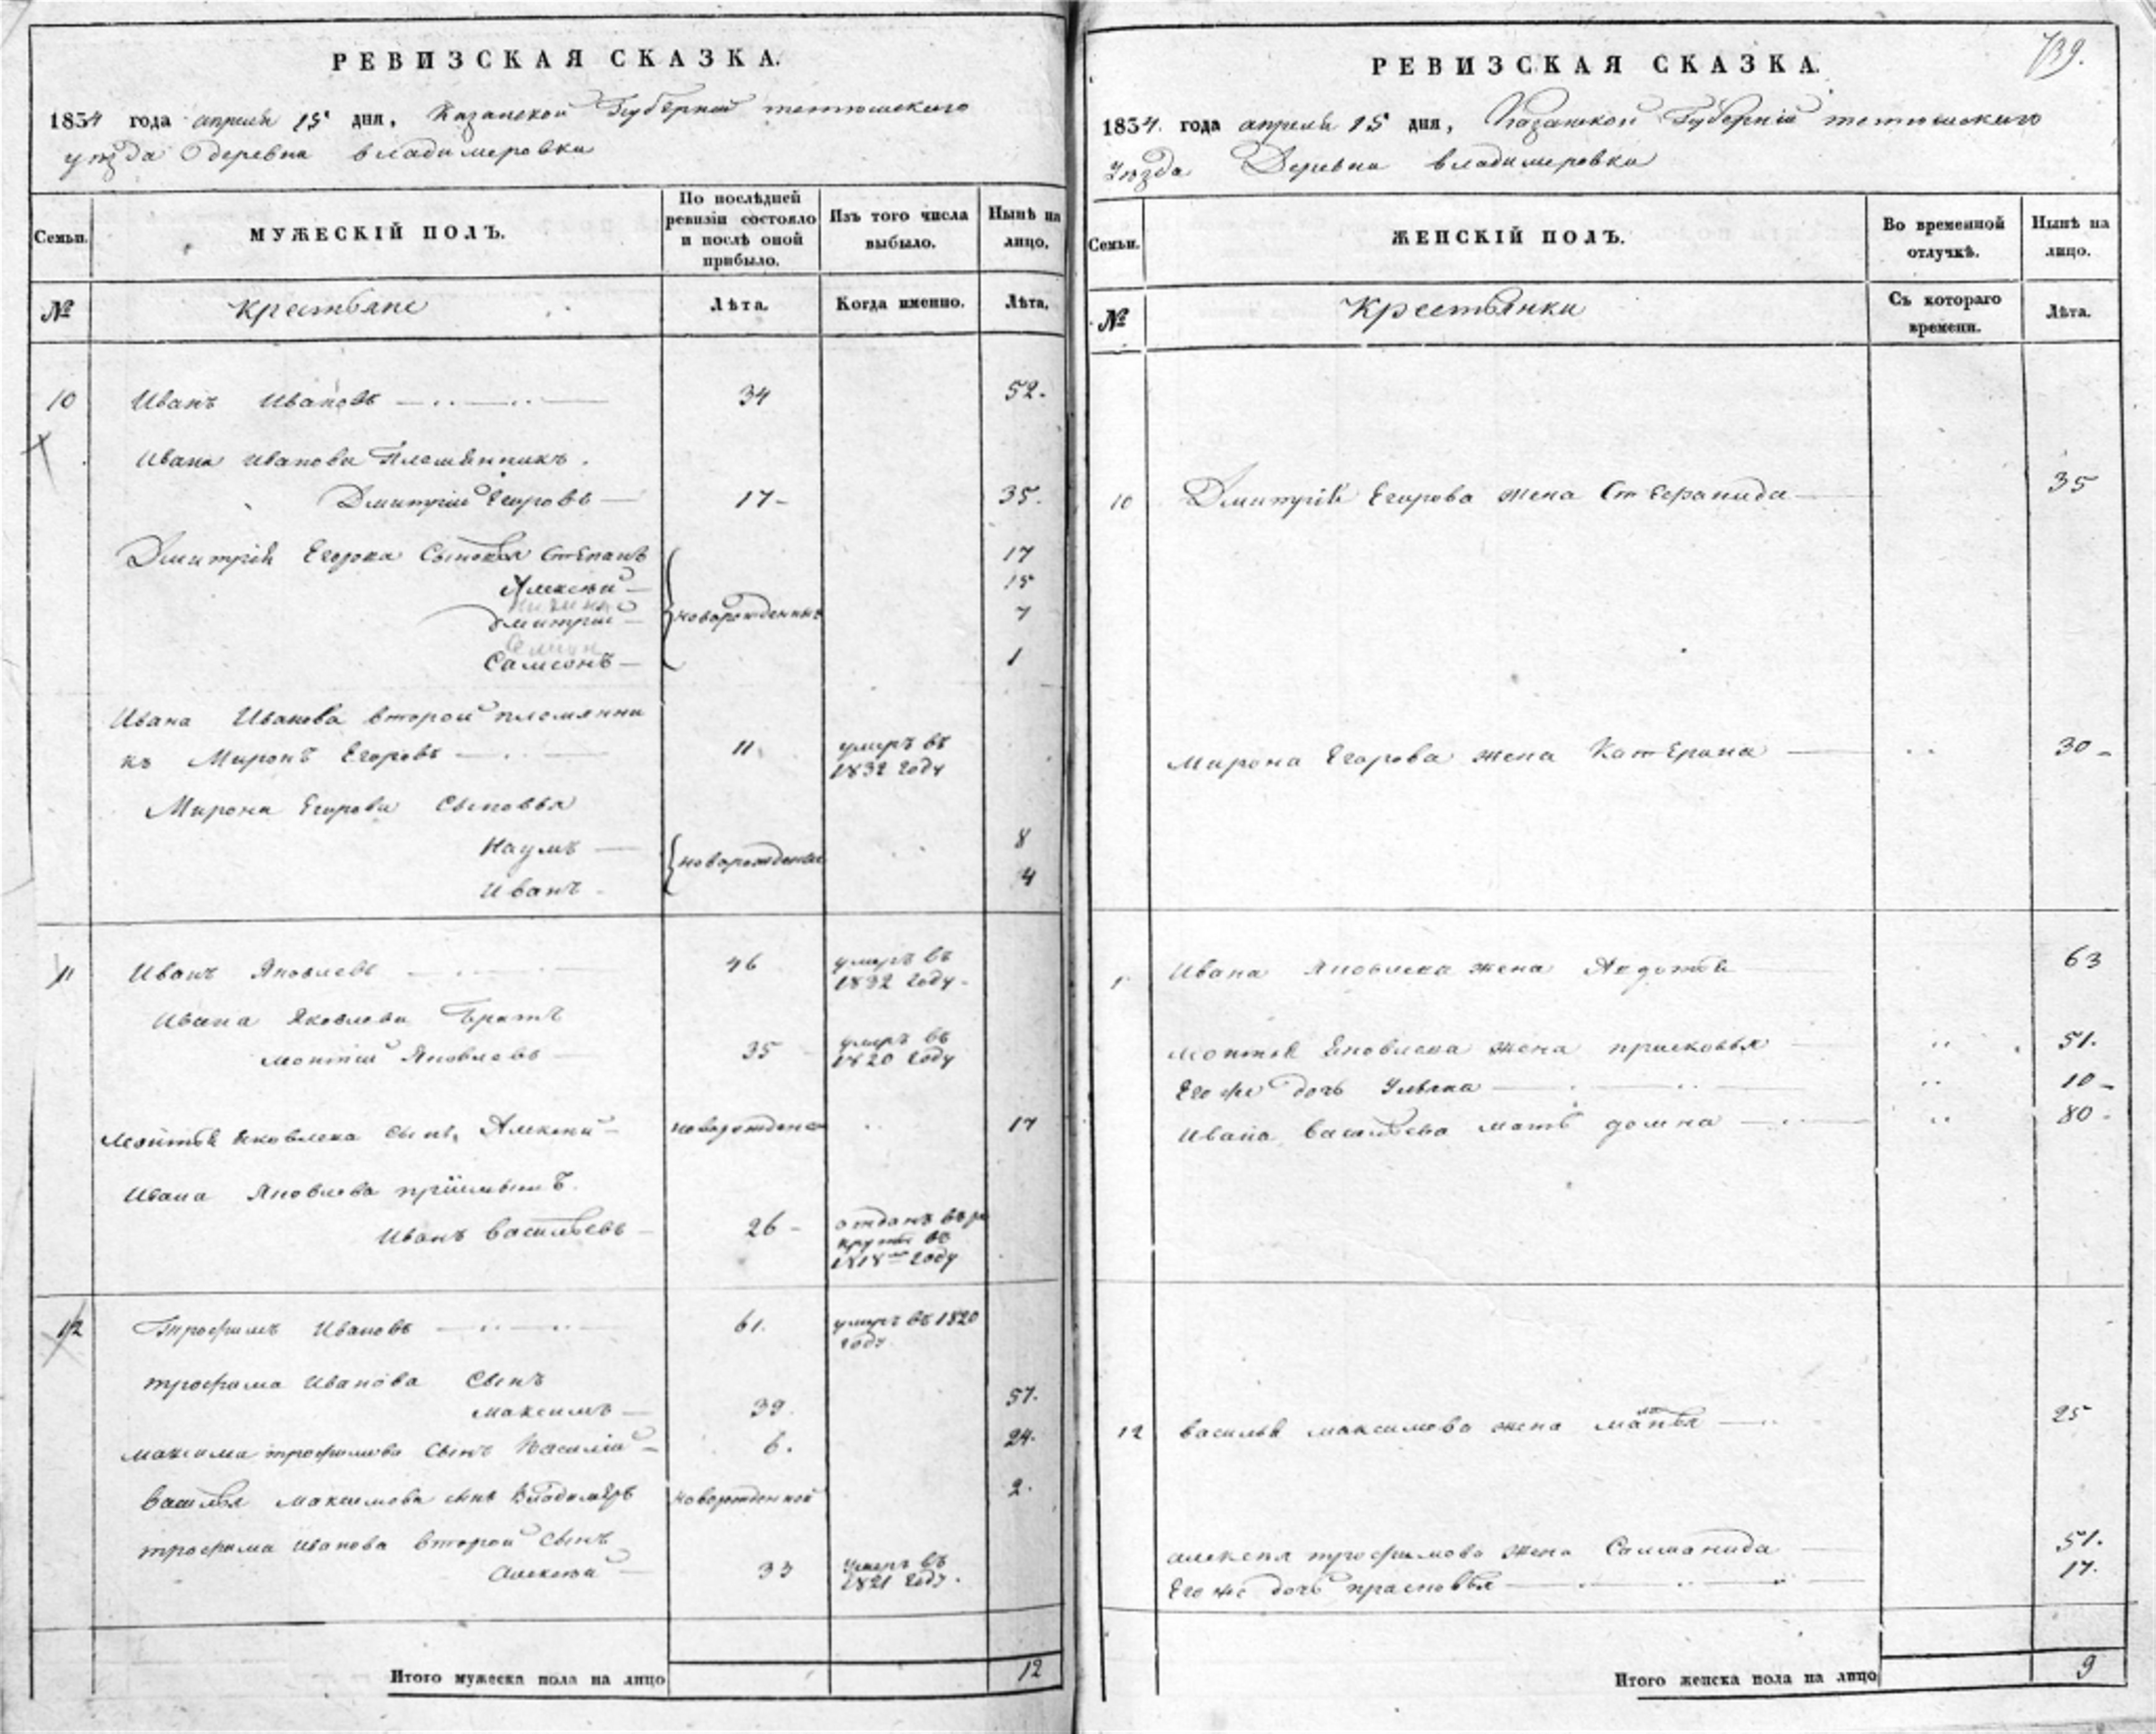 РЕВИЗСКАЯ СКАЗКА.
1834 года апреля 15 дня, Казанской Губернии тетюшского
уезда деревна владимеровки
Семьи.
МУЖЕСКІЙ ПОЛЪ.
По послѣдней ревизіи состояло и послѣ оной прибыло.
Изъ того числа выбыло.
Нынѣ на лицо.
№
Крестьяне
Лѣта.
Когда именно.
Лѣта.
10 Иванъ Ивановъ 34 52.
Ивана иванова Племянникъ.
Дмитрій Егоровъ 17 35.
Дмитрія Егорова Сыновья Степанъ 17
Алексѣй 15
Дмитрій новорожденныя 7
Семион
Самсонъ 1
Ивана Иванова второй племянни
къ Миронъ Егоровъ 11 умеръ въ
1832 году
Мирона Егорова Сыновья
Наумъ 8
новорожденые
Иванъ 4
11 Иванъ Яковлевъ 46 умеръ въ
1832 году.
Ивана Яковлева братъ
Моитей Яковлевъ 35 умеръ въ
1820 году
Моитея яковлева сынъ Алексей новорожденой 17
Ивана Яковлева пріемышъ.
Иванъ васильевъ 26 отданъ въ ре
круты въ
1818 году
12 Трофимъ Ивановъ 61. умеръ въ 1820
году.
трофима Иванова Сынъ
максимъ 39. 57.
максима трофимова Сынъ Василій 6. 24.
василья максимова сынъ Владимеръ новорожденной 2.
трофима иванова второй сынъ
алексѣй 33 умеръ въ
1821 году.
Итого мужеска пола на лицо 12
739.
РЕВИЗСКАЯ СКАЗКА.
1834. года апреля 15 дня, Казанской Губерніи тетюшского
Уезда Деревна владимеровки
Семьи.
ЖЕНСКІЙ ПОЛЪ.
Во временной отлучкѣ.
Нынѣ на лицо.
№
Крестьянки
Съ котораго времени.
Лѣта.
10 Дмитрія Егорова жена Степанида 35
Мирона Егорова жена Катерина 30
Ивана Яковлева жена Авдотья 63
Моитея Яковлева жена прасковья 51.
Его же дочь Ульяна 10
Ивана васильева мать домна 80
12 василья максимова жена маланья 25
алексея трофимова жена Саломанида 51.
Его же дочь прасковья 17.
Итого женска пола на лицо 9